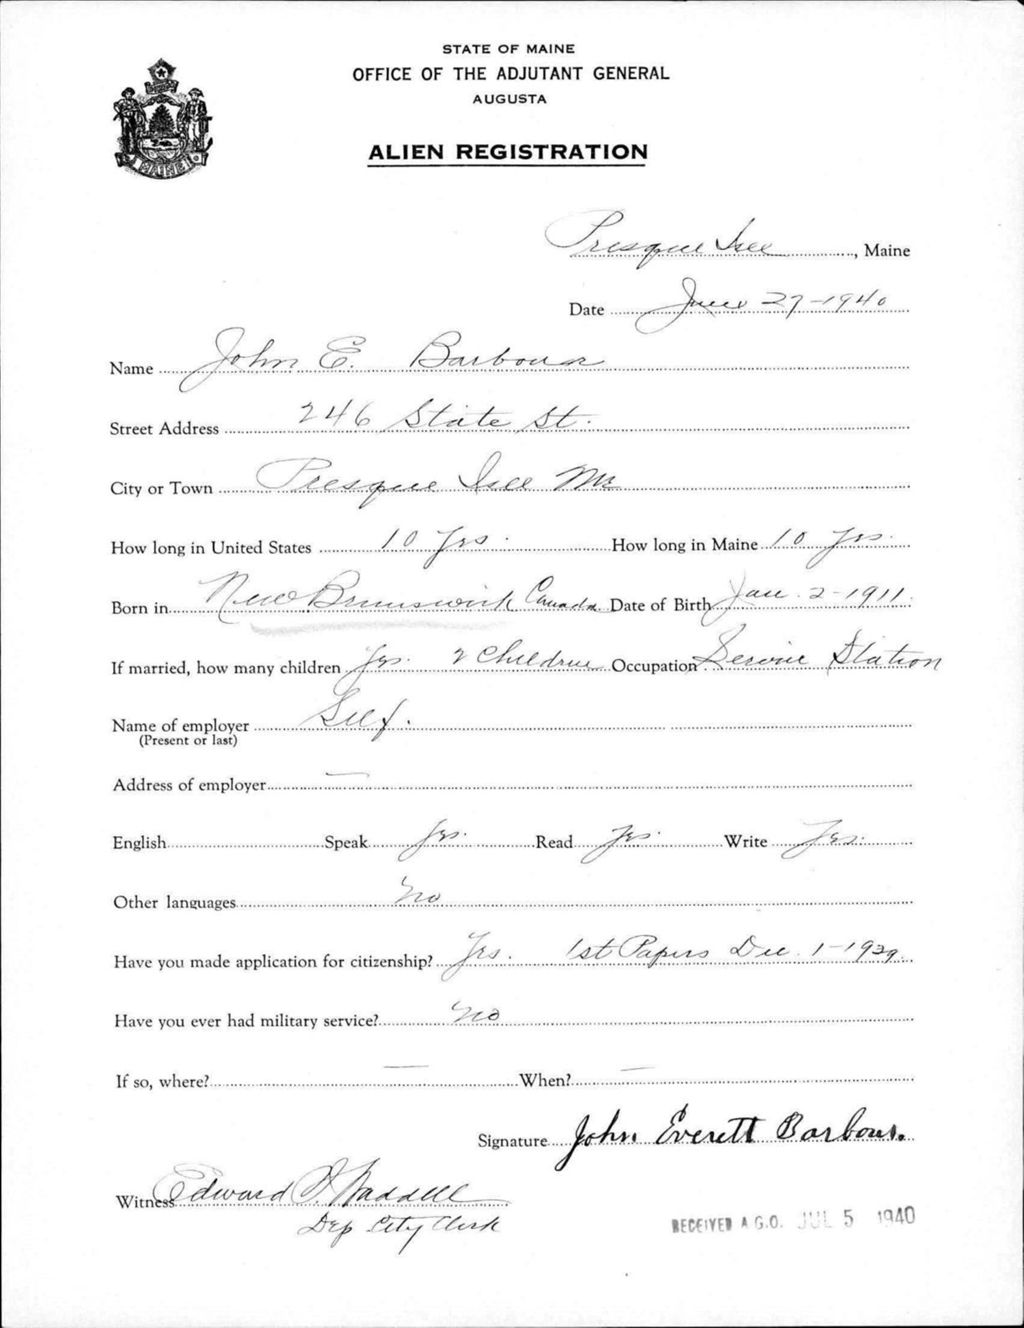 STATE OF MAINE
OFFICE OF THE ADJUTANT GENERAL
AUGUSTA
ALIEN REGISTRATION
MAINE
Presque Isle, Maine
Date June 27-1940
Name John E. Barbour
Street Address 246 State St.
City or Town Presque Isle Me
How long in United States 10 Yrs. How long in Maine 10 Yrs.
Born in New Brunswick Canada Date of Birth Jan. 2-1911.
If married, how many children Yes. 2 Children Occupation Service Station
Name of employer Self.
(Present or last)
Address of employer —
English Speak Yes. Read Yes. Write Yes.
Other languages No
Have you made application for citizenship? Yes. 1st Papers Dec. 1-1939.
Have you ever had military service? No
If so, where? — When? —
Signature John Everett Barbour.
Witness Edward Waddell
Dep City Clerk
RECEIVED A.G.O. JUL 5 1940